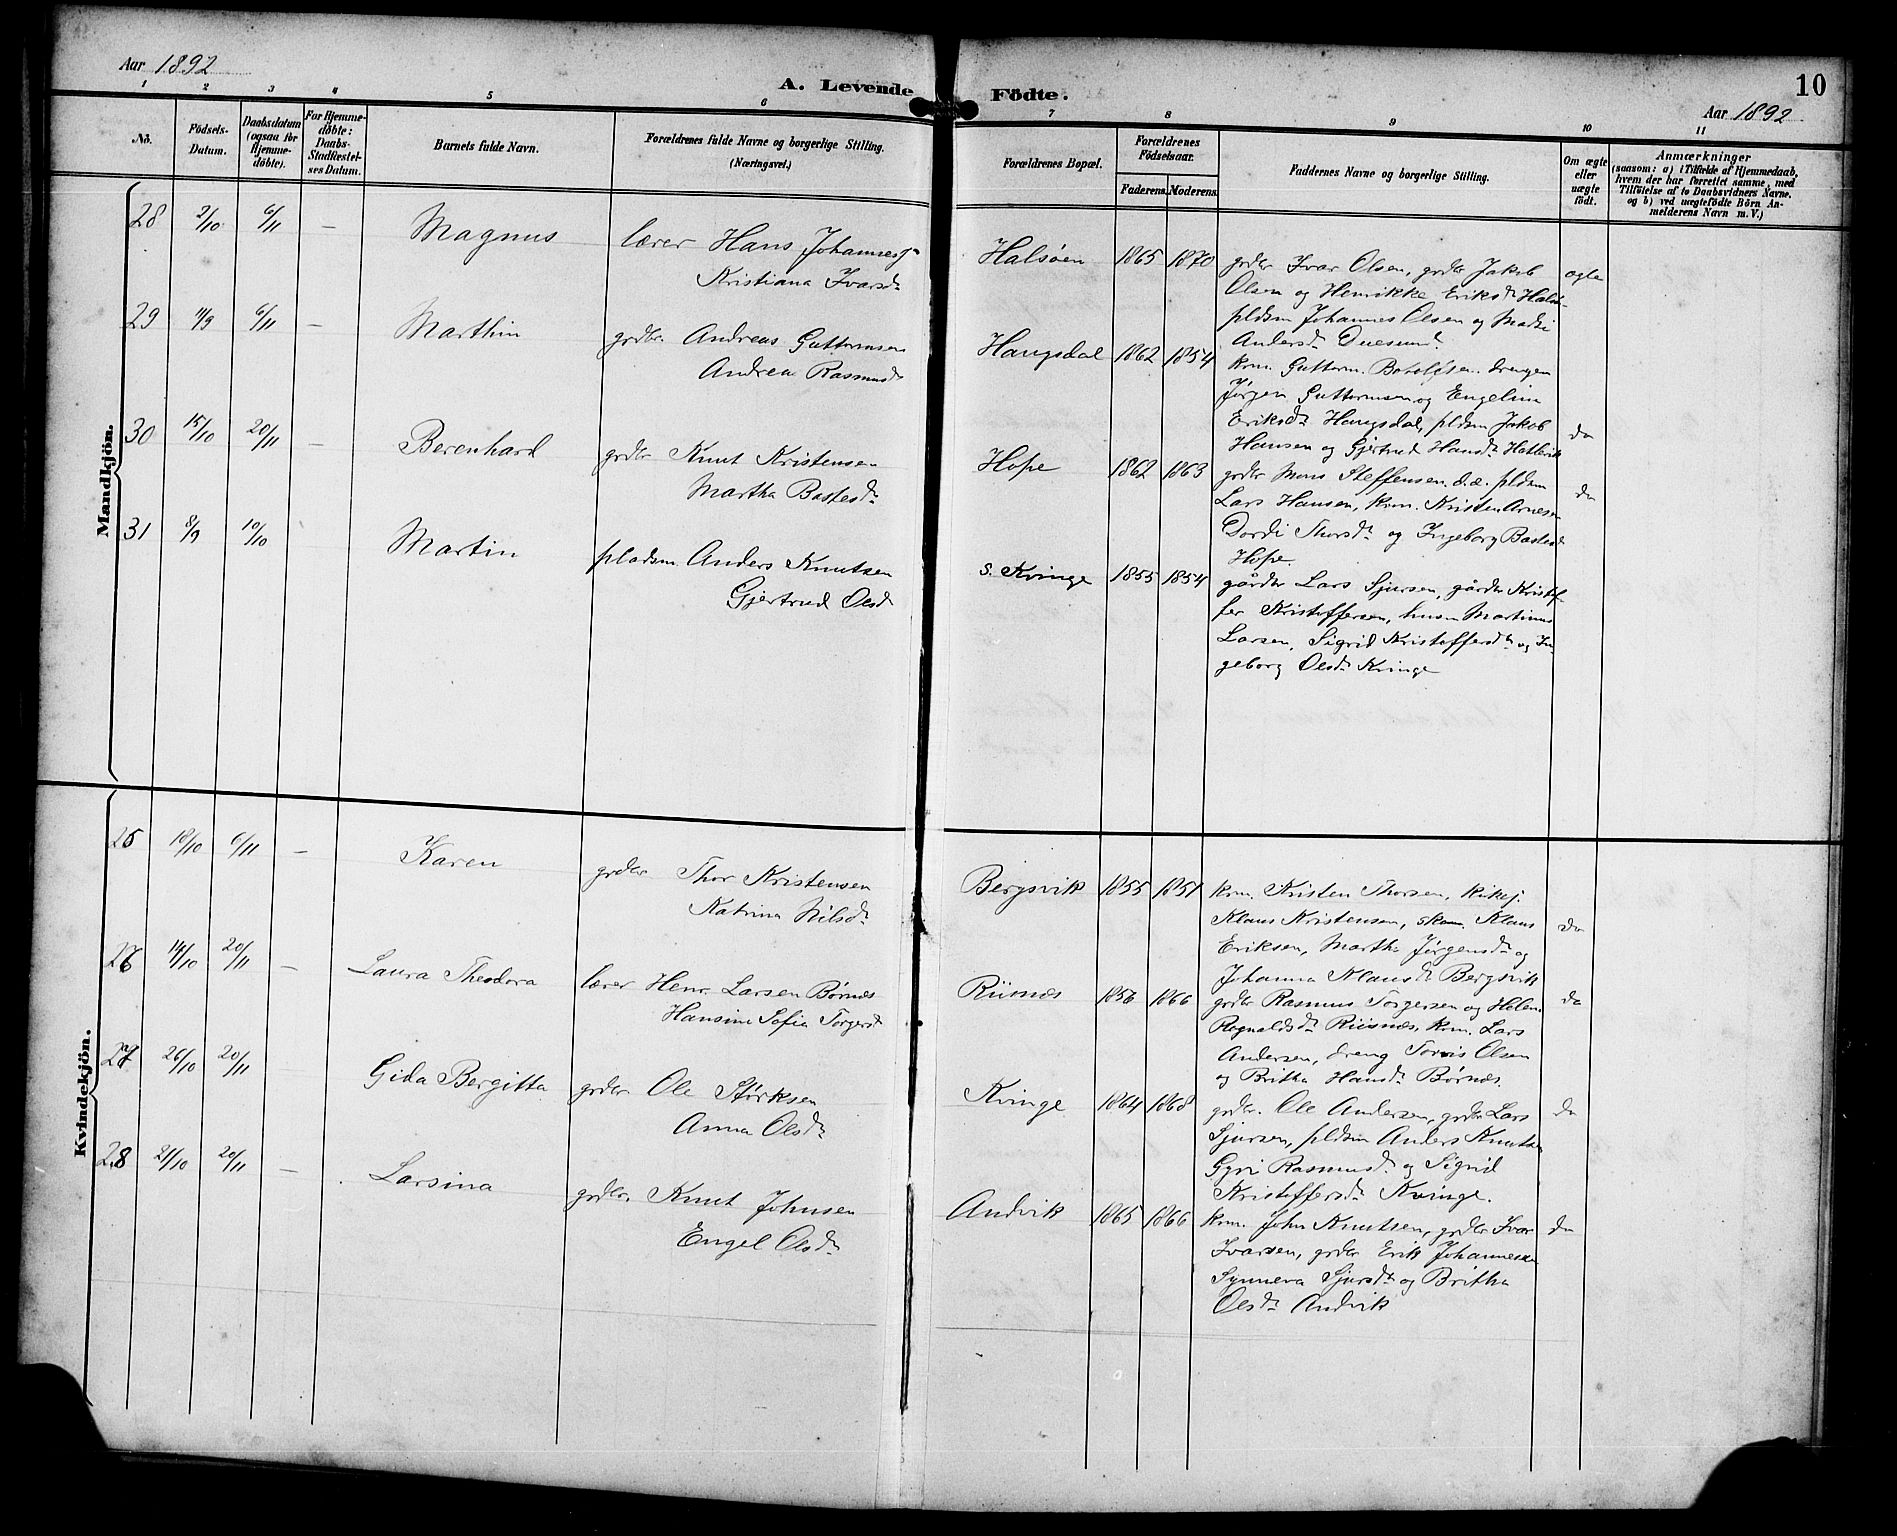 Aar 1892
A. Levende Födte.
10
Aar 1892
1 2 3 4 5 6 7 8 9 10 11
No.
Födsels-Datum.
Daabsdatum (ogsaa for Hjemmedöbte).
For Hjemmedöbte: Daabs-Stadfæstelses Datum.
Barnets fulde Navn.
Forældrenes fulde Navne og borgerlige Stilling.
(Næringsvei.)
Forældrenes Bopæl.
Forældrenes Födselsaar.
Faderens. Moderens.
Faddernes Navne og borgerlige Stilling.
Om ægte eller uægte födt.
Anmærkninger
(saasom: a) i Tilfælde af Hjemmedaab,
hvem der har forrettet samme, med
Tilföielse af to Daabsvidners Navne.
og b) ved uægtefödte Börn An-
melderens Navn m. V.)
Mandkjön.
28 2/10 6/11 — Magnus lærer Hans Johannes
Kristiana Ivarsdr
Halsøen 1865 1870 grdbr Ivar Olsen, grdbr Jakob
Olsen og Henrikke Eriksdr
pldsm Johannes Olsen og
Andersdr Duesund
ægte
29 11/9 6/11 — Marthin grdbr. Andreas Guttormsen
Andrea Rasmusdr
Haugsdal 1862 1854 krm. Guttorm. drengen
Jørgen Guttormsen og Engelina
Eriksdr Haugsdal, pldsm Jakob
Hansen og Gjertrud Hansdr
do
30 15/10 20/11 — Berenhard grdbr Knut Kristensen
Martha Bastesdr
Hope 1862 1863 grdbr Mons Steffensen. d.e. pldsm
Lars Hansen, krm. Kristen Arnesen
Dordi Thorsdr og Ingeborg Bastesdr
Hope.
do
31 8/9 10/10 Martin pladsm. Anders Knutsen
Gjertrud Olsd
S. Kvinge 1855 1854 gårdbr Lars Sjursen, gårdbr Kristof-
fer Kristoffersen, husm Martinus
Larsen, Sigrid Kristoffersdr og In-
geborg Olsdr Kvinge
Kvindekjön.
25 18/10 6/11 — Karen grdbr Thor Kristensen
Katrina Nilsdr
Bergsvik 1855 1851 krm. Kristen Thorsen,
Klaus Kristensen, Klaus
Eriksen, Martha Jørgensdr og
Johanna Klausdr Bergsvik
do
26 14/10 20/11 — Laura Theodora lærer Henr. Larsen Børnæs
Hansine Sofia Torgersd
Riisnæs 1856 1866 grdbr Rasmus Torgersen og Helene
Rognaldsdr Riisnæs, krm. Lars
Andersen, dreng Olsen
og Britha Hansdr Børnæs.
do
27 26/10 20/11 Gida Bergitta grdbr. Ole Størksen
Anna Olsdr
Kvinge 1864 1868 grdbr. Ole Andersen, grdbr Lars
Sjursen, pldsm Anders Knutsen
Gyri Rasmusdr og Sigrid
Kristoffersdr Kvinge.
do
28 21/10 20/11 — Larsina grdbr. Knut Johnsen
Engel Olsdr
Andvik 1865 1866 krm. John Knutsen, grdbr Ivar
Ivarsen, grdbr Erik Johannessen
Synneva Sjursdr og Britha
Olsdr Andvik
do